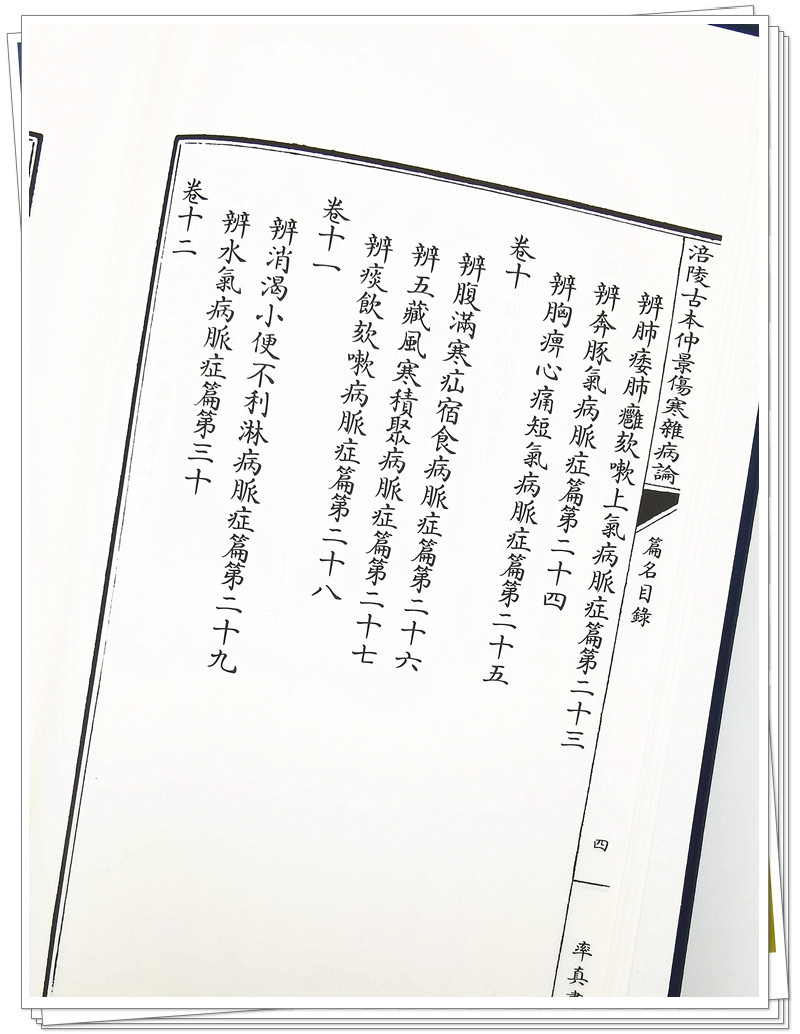 涪陵古本仲景傷寒雜病論
篇名目錄
四
率真
辨肺痿肺癰欬嗽上氣病脈症篇第二十三
辨奔豚氣病脈症篇第二十四
辨胸痹心痛短氣病脈症篇第二十五
卷十
辨腹滿寒疝宿食病脈症篇第二十六
辨五藏風寒積聚病脈症篇第二十七
辨痰飲欬嗽病脈症篇第二十八
卷十一
辨消渴小便不利淋病脈症篇第二十九
辨水氣病脈症篇第三十
卷十二